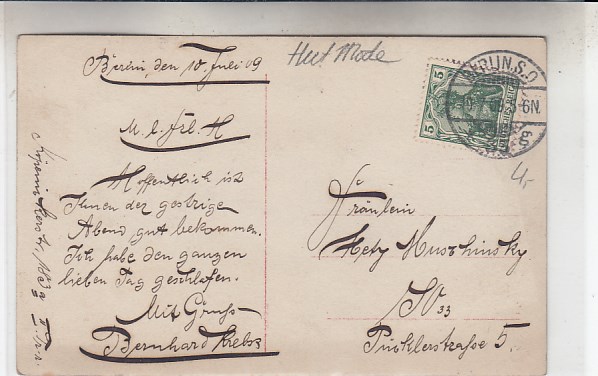 Hut Mode
Berlin, den 10. Juli 09
M. l. Frl. H
Hoffentlich ist
Ihnen der gestrige
Abend gut bekommen.
Ich habe den ganzen
lieben Tag geschlafen.
Mit Gruss
Bernhard Krebs
BERLIN.S.O
6N.
5
5
4,-
Fräulein
SO 33
Pücklerstraße 5.